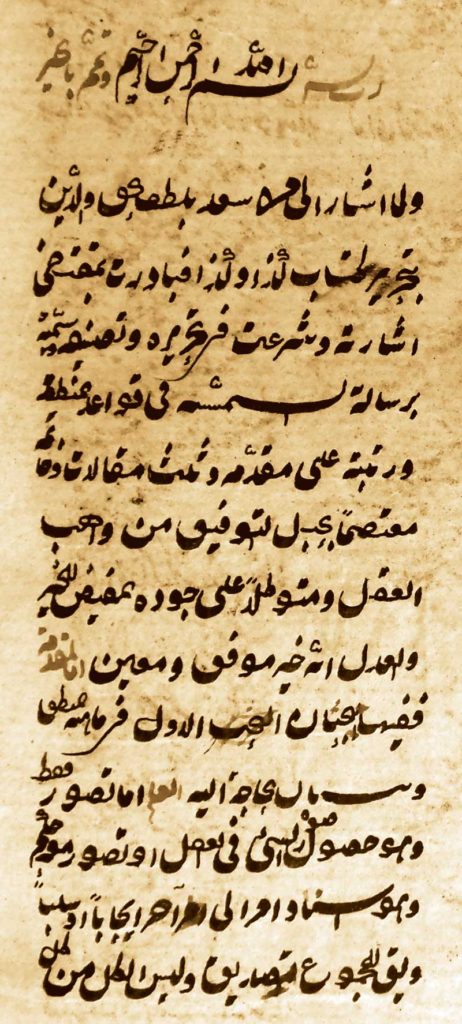 بسم الله الرحمن الرحيم وتمم بالخير
ولما اشار الى من سعد بلطف الحق والدين
بتحرير الكتاب كذا وكذا فبادرت بمقتضى
اشارته وشرعت في تحريره وتصنيفه وسميته
برسالة الشمسية في قواعد المنطقية
ورتبته على مقدمة وثلث مقالات وخاتمة
معتصماً بحبل التوفيق من واهب
العقل ومتوكلاً على جوده المفيض للخير
والعدل انه خير موفق ومعين اما المقدمة
ففيها بحثان البحث الاول في ماهية المنطق
وبيان الحاجة اليه العلم اما تصور فقط
وهو حصول صورة الشئ في العقل او تصور معه حكم
وهو اسناد امر الى امر آخر ايجاباً او سلباً
ويق للمجموع تصديق وليس الكل من كل